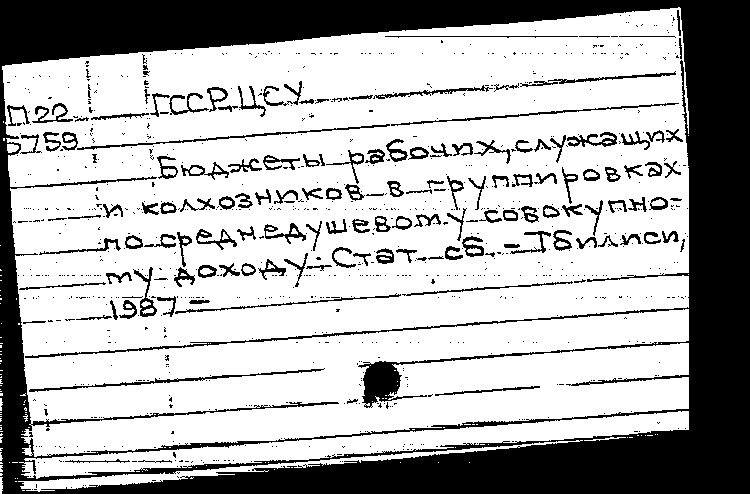 П22 ГССР. ЦСУ.
5759
Бюджеты рабочих, служащих
и колхозников в группировках
по среднедушевому совокупно-
му доходу: Стат. сб. – Тбилиси,
1987 –